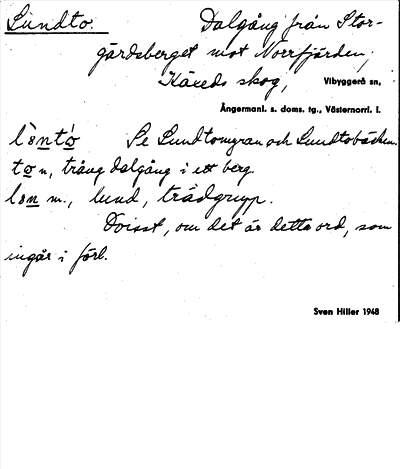 Lundto. Dalgång från Stor-
gårdsberget mot Norrfjärden,
Käxeds skog, Vibyggerå sn,
Ångermanl. s. doms. tg., Västernorrl. l.
Se Lundtomyran och Lundtobäcken.
n, trång dalgång i ett berg.
m., lund, trädgrupp.
Ovisst, om det är detta ord, som
ingår i förl.
Sven Hiller 1948